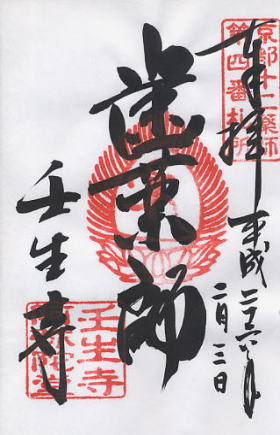 京都十二薬師
第四番札所
奉拝
平成二十六年
二月三日
歯薬師
壬生寺
壬生寺